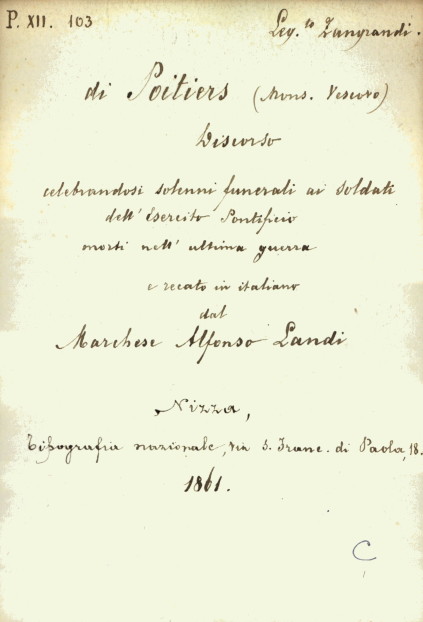 P. XII. 103
Leg.to Zangrandi.
di Poitiers (Mons. Vescovo)
Discorso
celebrandosi solenni funerali ai soldati
dell' Esercito Pontificio
morti nell' ultima guerra
e recato in italiano
dal
Marchese Alfonso Landi
Nizza,
Tipografia nazionale, via S. Franc. di Paola, 18.
1861.
C